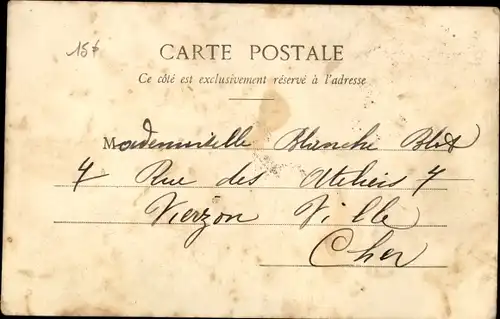 15f
CARTE POSTALE
Ce côté est exclusivement réservé à l'adresse
Mademoiselle Blanche Blot
4 Rue des Ateliers 4
Vierzon Ville
Cher